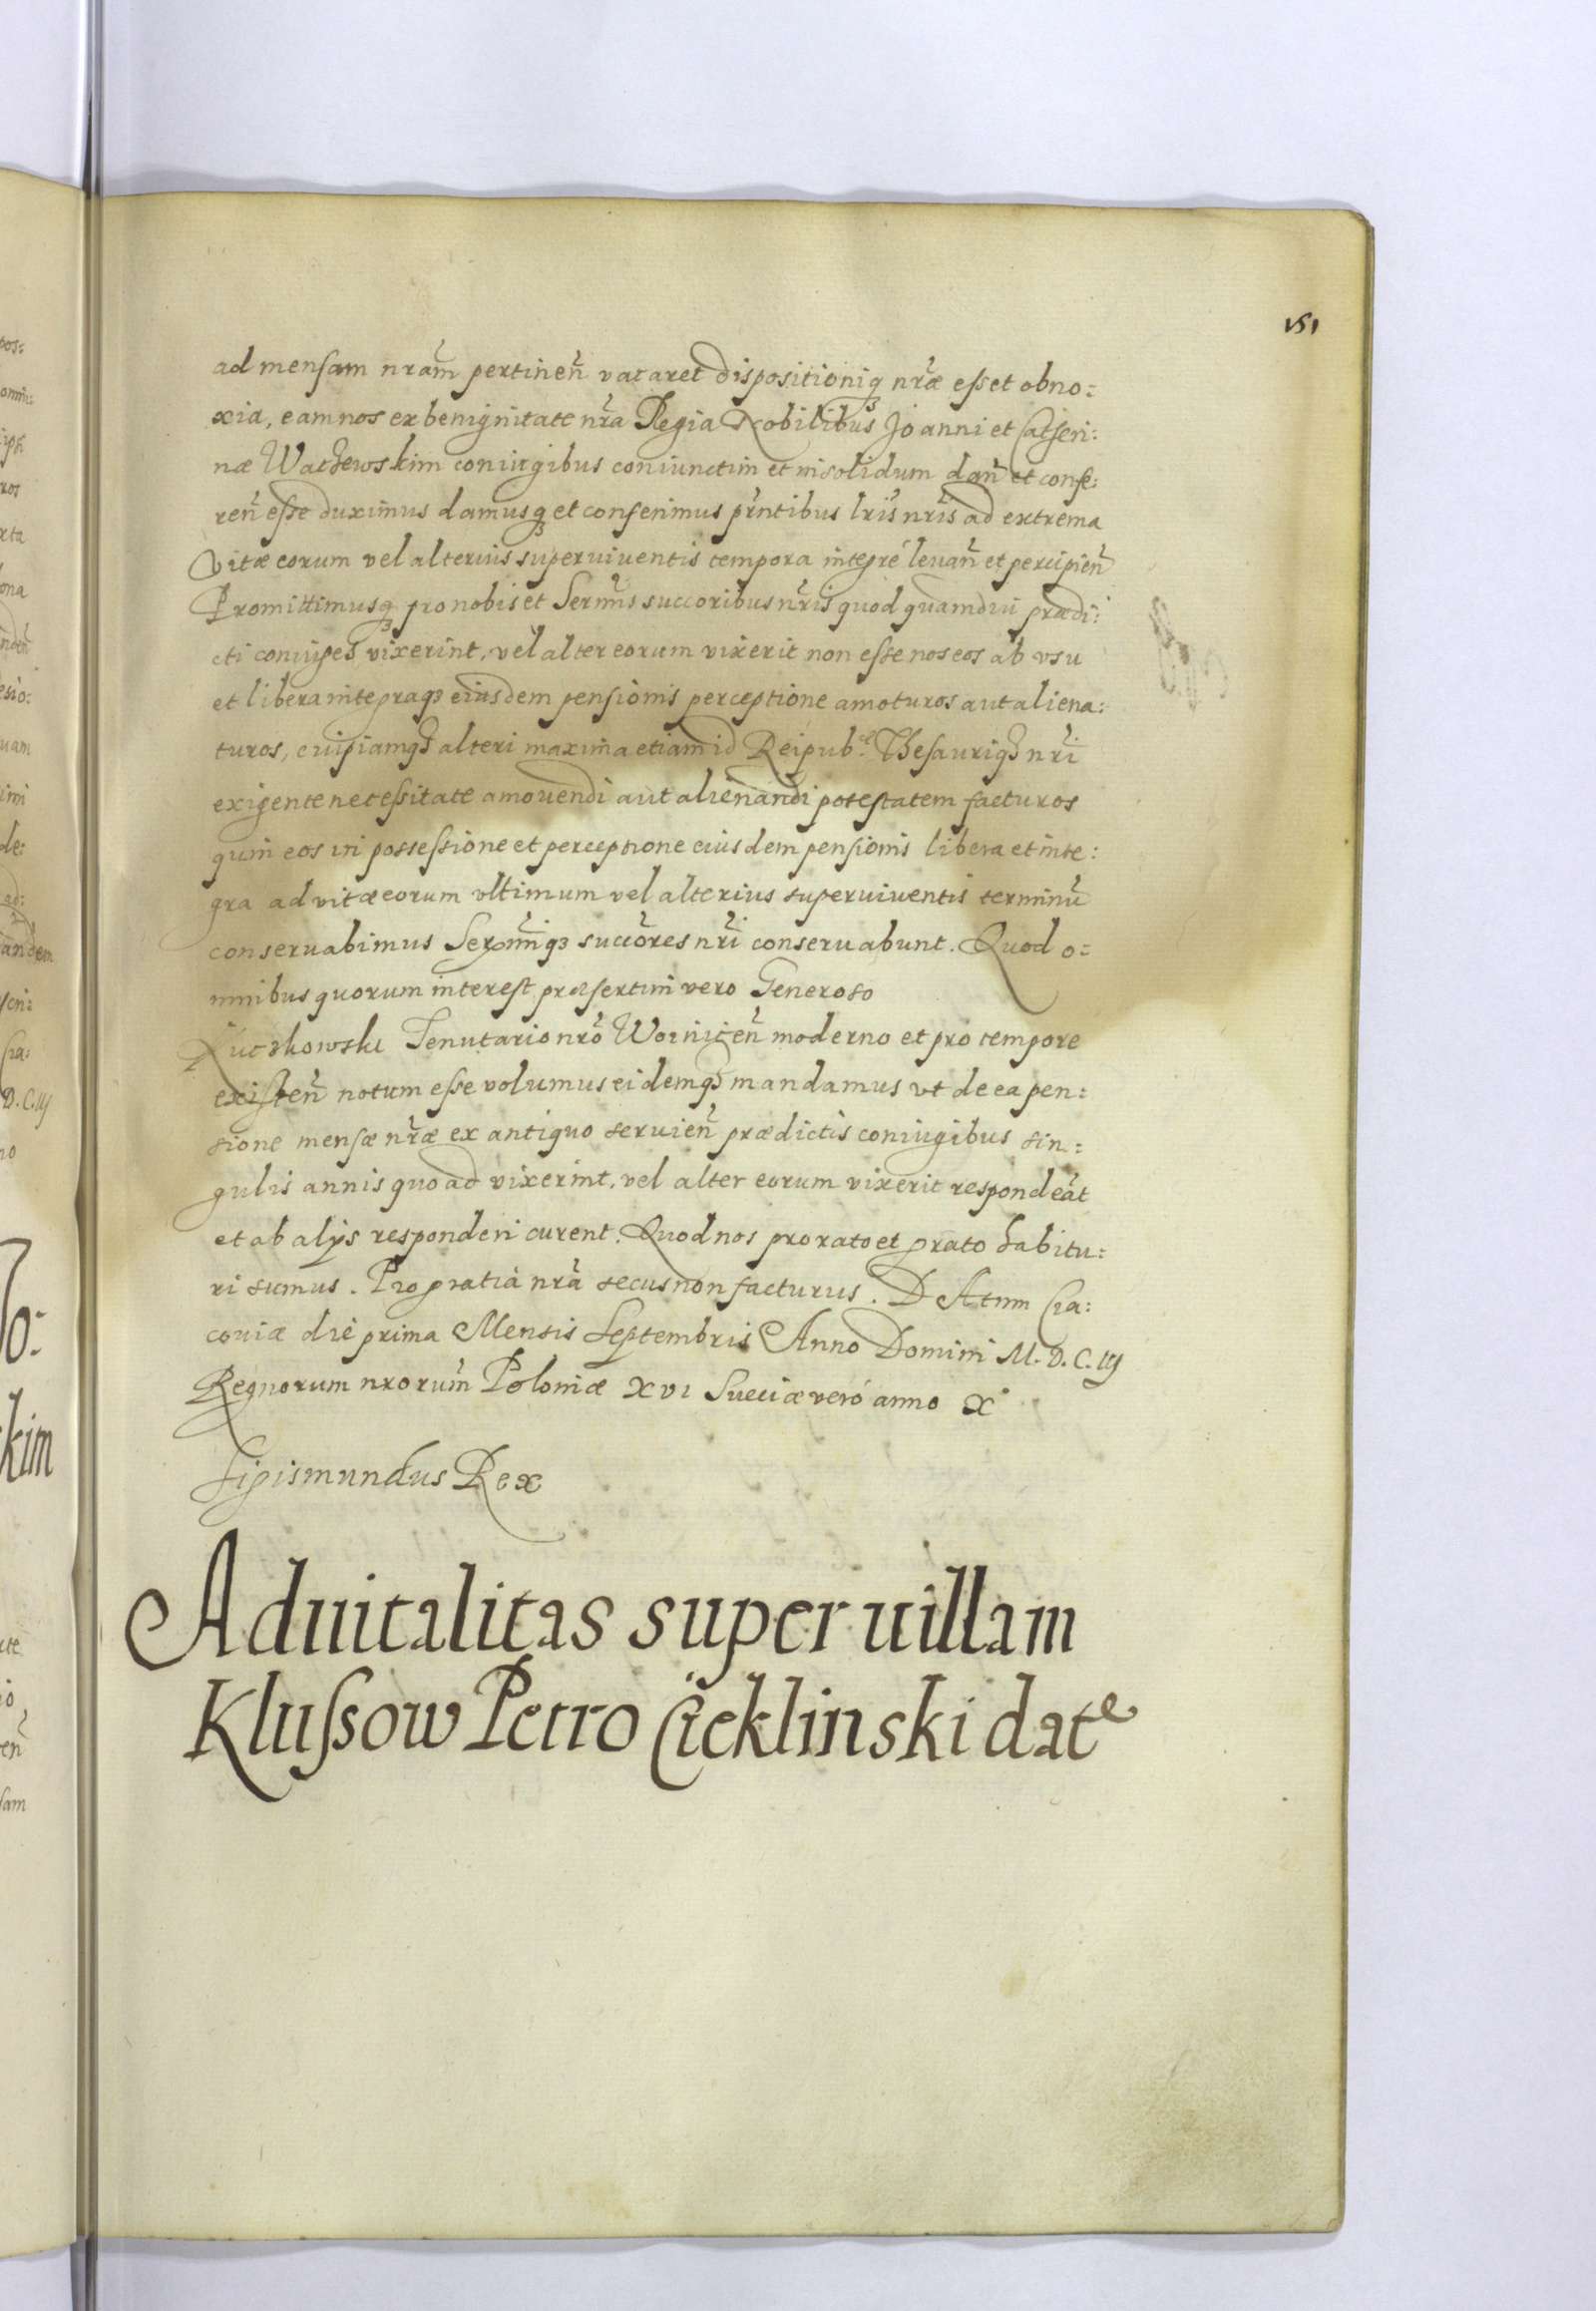 151
ad mensam nram̃ pertineñ vacaret dispositioniq3 nr̃æ esset obno:
xia, eam nos ex benignitate nr̃a Regia Nobilibus Joanni et Catheri:
næ Wachewskim coniugibus coniunctim et insolidum dañ et confe:
reñ esse duximus damusq3 et conferimus prñtibus lris̃ nris̃ ad extrema
vitæ eorum vel alterius superviventis tempora integrè levañ et percipieñ
Promittimusq3 pro nobis et Sermis̃ succoribus nr̃is quod quamdiu prædi:
cti coniuges vixerint, vel alter eorum vixerit non esse nos eos ab vsu
et libera integraq3 eiusdem pensionis perceptione amoturos aut aliena:
turos, cuipiamq3 alteri maxima etiam id Reipub.ce Thesauriq3 nr̃i
exigente necessitate amouendi aut alienandi potestatem facturos
quin eos in possessione et perceptione eiusdem pensionis libera et inte:
gra ad vitæ eorum vltimum vel alterius superuiuentis terminũ
conseruabimus Sermĩq3 succõres nr̃i conseruabunt. Quod o:
mnibus quorum interest præsertim vero Generoso
Luczkowski Tenutario nrõ Woiniceñ moderno et pro tempore
existeñ notum esse volumus eidemq3 mandamus vt de ea pen:
sione mensæ nr̃æ ex antiquo seruieñ prædictis coniugibus sin:
gulis annis quoad vixerint, vel alter eorum vixerit respondeãt
et ab alijs responderi curent. Quod nos pro rato et grato habitu:
ri sumus. Pro gratia nrã secus non facturus. DAtum Cra:
coviæ die prima Mensis Septembris Anno Domini M.D.C.iij
Regnorum nrorum̃ Poloniæ xvi Sueciæ verò anno x°
Sigismundus Rex
Aduitalitas super uillam
Klussow Petro Cieklinski date